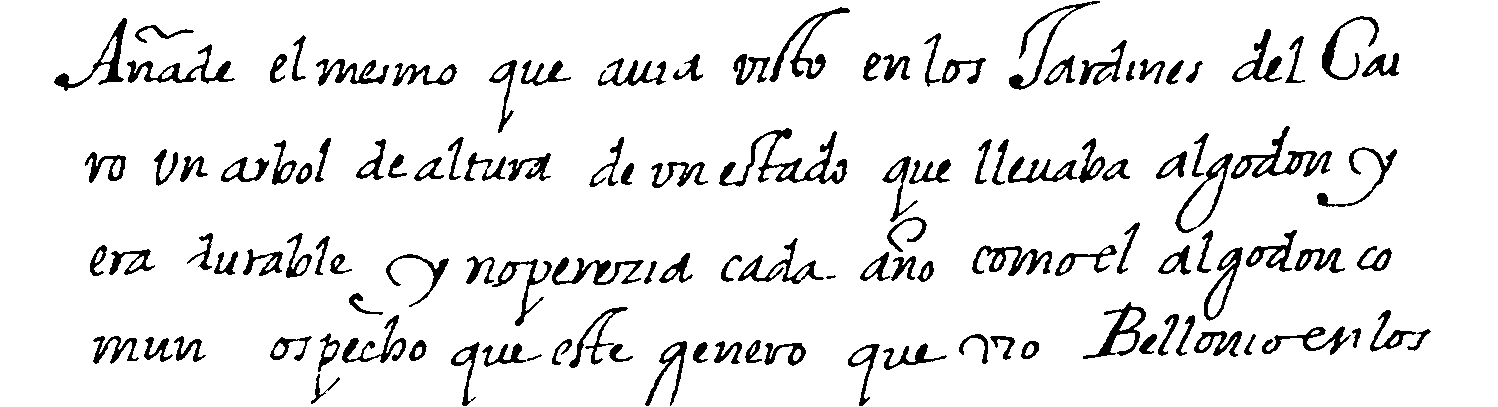 Añade el mesmo que auia visto en los Jardines del Cai
ro vn arbol de altura de vn estado que lleuaba algodon y
era durable y no perezia cada año como el algodon co
mun ospecho que este genero que vio Bellonio en los